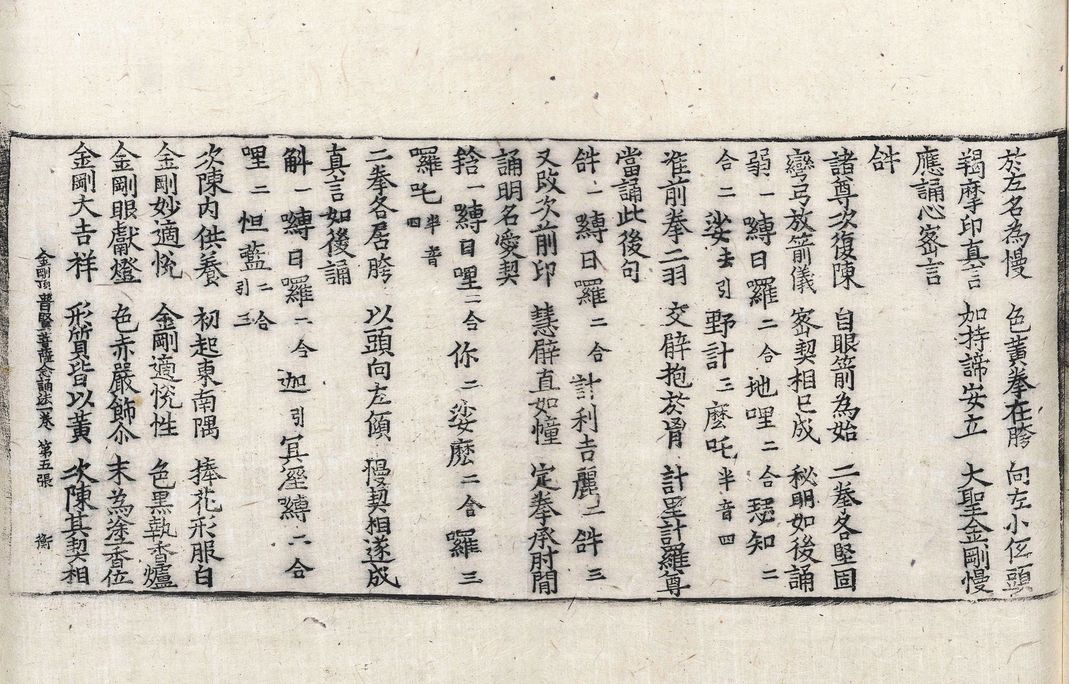 於左名為慢　色黄拳在胯　向左小低頭
羯摩印真言　如持諦安立　大聖金剛慢
應誦心密言
𤙖
諸尊次復陳　自眼箭為始　二拳各堅固
彎弓放箭儀　密契相已成　秘明如後誦
弱一嚩日囉二合地哩二合瑟知二
合二娑去引野計三麼吒半音四
准前拳二羽　交臂抱於胷　計里計羅尊
當誦此後句
𤙖一嚩日囉二合計利吉麗二𤙖三
又改次前印　慧臂直如幢　定拳承肘間
誦明名愛契
鍐一嚩日哩二合你二娑麼二合囉三
囉吒半音四
二拳各居胯　以頭向左傾　慢契相遂成
真言如後誦
斛一嚩日囉二合迦引冥溼嚩二合
哩二怛藍二合引三
次陳内供養　初起東南隅　捧花形服白
金剛妙適悅　金剛適悅性　色黑執香爐
金剛眼獻燈　色赤嚴飾尒　末為塗香位
金剛大吉祥　形質皆以黄　次陳其契相
金剛頂普賢菩薩念誦法一卷　第五張　衡